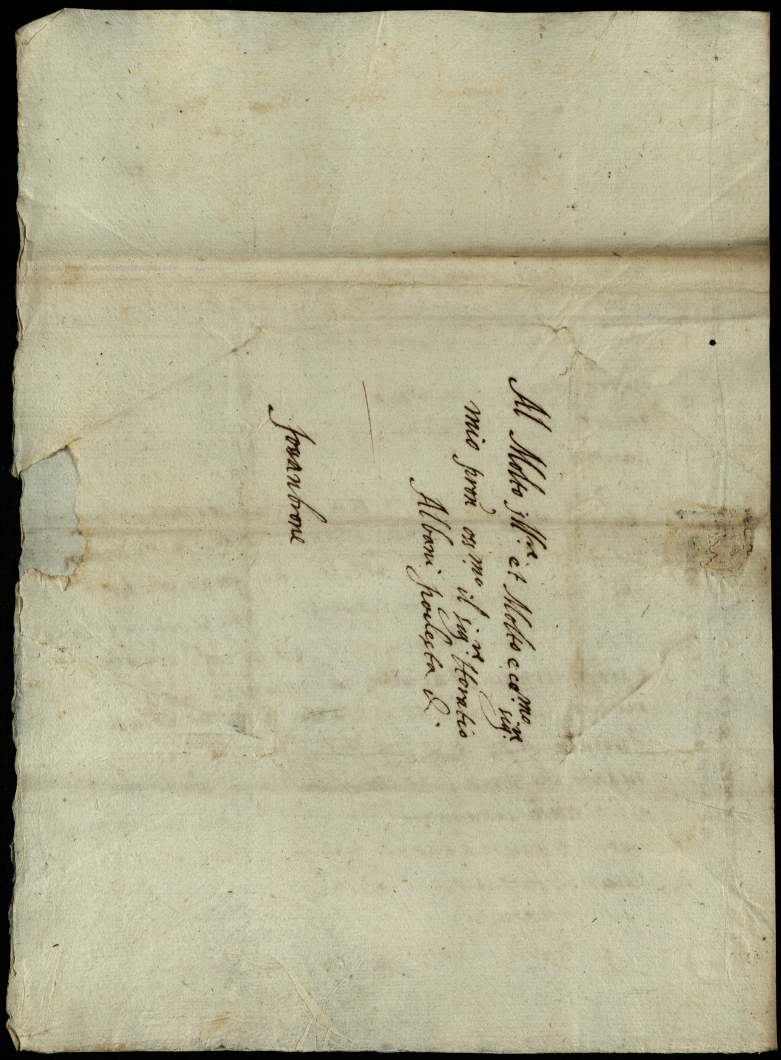 Al Molto Ill.re et Molto ecc.mo sig.re
mio pron oss.mo il sig.re Horatio
Albani podesta di
Fossanbrone